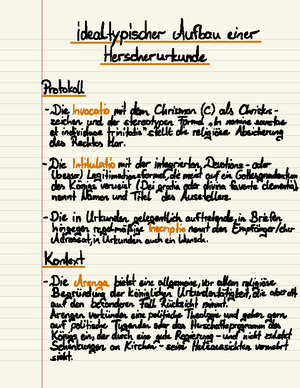 idealtypischer Aufbau einer
Herscherurkunde
Protokoll
- Die Invocatio mit dem Chrismon (C) als Christus-
zeichen und der stereotypen Formel „In nomine sanctae
et individuae trinitatis" stellt die religiöse Absicherung
des Rechtes klar.
- Die Intitulatio mit der integrierten, Devotions- oder
(besser) Legitimationsformel, die meist auf ein Gottesgnadentum
des Königs verweist (Dei gratia oder divina favente clementia)
nennt Namen und Titel des Ausstellers.
- Die in Urkunden gelegentlich auftretende, in Briefen
hingegen regelmäßige Inscriptio nennt den Empfänger/der
Adressat, in Urkunden auch ein Wunsch.
Kontext
- Die Arenga bietet eine allgemeine, vor allem religiöse
Begründung der königlichen Urkundentätigkeit, die aber oft
auf den besonderen Fall Rücksicht nimmt.
Arengen verkünden eine politische Theologie und gehen gern
auf politische Tugenden oder das Herrschaftsprogramm des
Königs ein, der durch eine gute Regierung - und nicht zuletzt
Schenkungen an Kirchen - seine Heilsaussichten vermehrt
sieht.